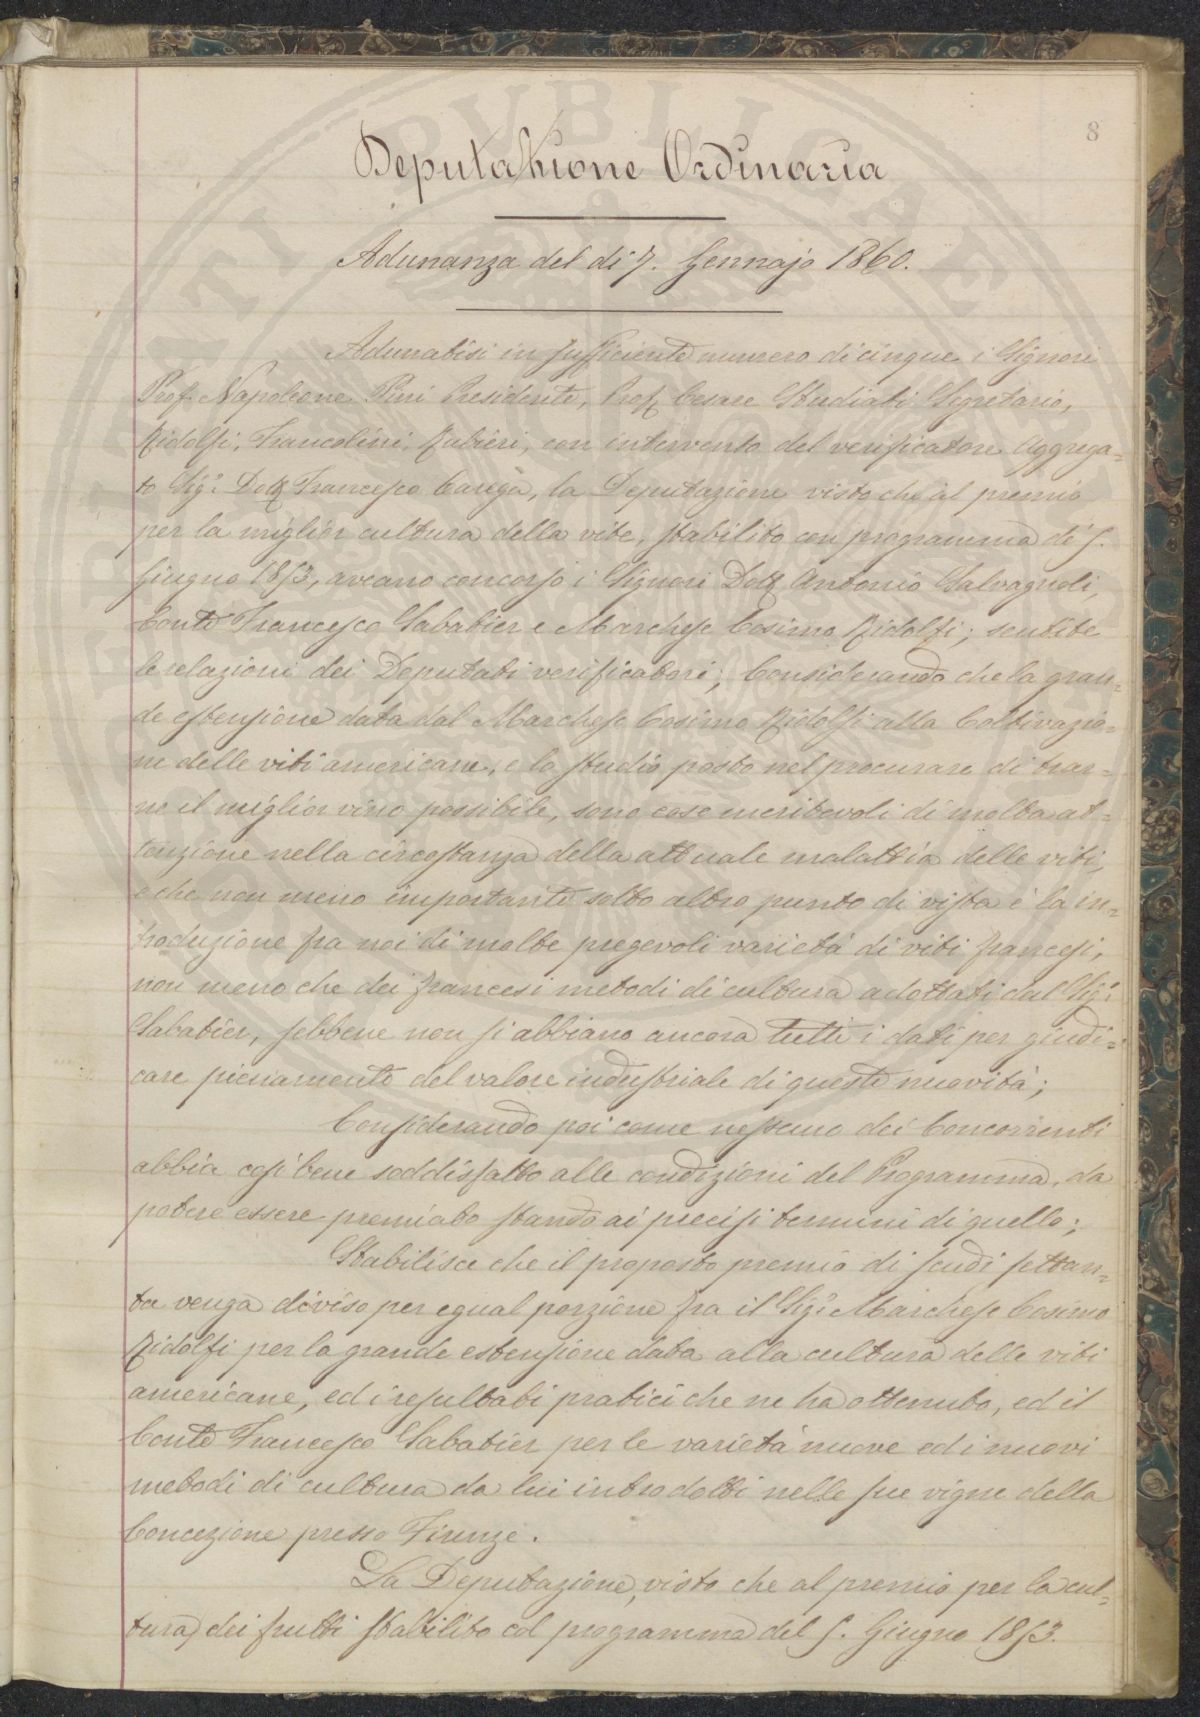 8
Deputazione Ordinaria
Adunanza del di 7. Gennajo 1860.
Adunatisi in sufficiente numero di cinque i Signori
Prof. Napoleone Pini Presidente, Prof. Cesare Studiati Segretario,
Ridolfi, Francolini, Rubieri, con intervento del verificatore aggrega=
to Sig.r Dott Francesco Carega, la Deputazione visto che al premio
per la miglior cultura della vite, stabilito con programma di 5.
Giugno 1853, aveano concorso i Signori Dott Antonio Salvagnoli,
Conte Francesco Sabatier e Marchese Cosimo Ridolfi; sentite
le relazioni dei Deputati verificatori; Considerando che la gran=
de estensione data dal Marchese Cosimo Ridolfi alla Coltivazio=
ne delle viti americane, e lo studio posto nel procurare di trar=
ne il miglior vino possibile, sono cose meritevoli di molta at=
tenzione nella circostanza della attuale malattia delle viti,
e che non meno importante sotto altro punto di vista è la in=
troduzione fra noi di molte pregevoli varietà di viti francesi,
non meno che dei francesi metodi di cultura adottati dal Sig.r
Sabatier, sebbene non si abbiano ancora tutti i dati per giudi=
care pienamente del valore industriale di queste nuovità;
Considerando poi come nessuno dei Concorrenti
abbia così bene soddisfatto alle condizioni del Programma, da
potere essere premiato stando ai precisi termini di quello;
Stabilisce che il proposto premio di scudi settan=
ta venga diviso per egual porzione fra il Sig.r Marchese Cosimo
Ridolfi per la grande estensione data alla cultura delle viti
americane, ed i resultati pratici che ne ha ottenuto, ed il
Conte Francesco Sabatier per le varietà nuove ed i nuovi
metodi di cultura da lui introdotti nelle sue vigne della
Concezione presso Firenze.
La Deputazione, visto che al premio per la cul=
tura dei frutti stabilito col programma del 5. Giugno 1853.